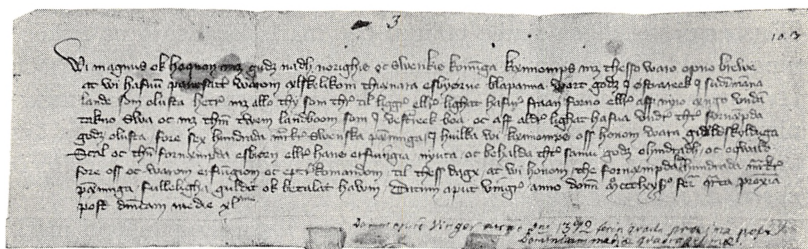 3
10.3
Wi magnus ok haquon mz gudz nadh norighis oc swerikis konunga kænnomps mz thesso waro opno brewe
at wi hafuum pantsæt warom ælskelikom thiænara esbyorne blapanna wart godz j j sudrmanna
lande som olusta heter mz allo thy som ther til ligger eller lighat hafuer fraan forno eller aff nyo ængo undan
takno swa oc mz them twem landboom som j boa oc aff alder lighat hafua undir thet fornæmpda
godz olusta fore sex hundrada mark swenska pæninga j huilka wi kænnomps oss honom wara
Scal oc then fornæmpda esbiorn eller hans erfuingia niuta oc behalda thet sama godz ohindradh oc oqwald
fore oss oc warom erfuingiom oc epter komandom til thess dagh at wi honom the fornæmpda hundrada mark
pæninga fulleligha guldit ok betalat hawom Datum aput vinger anno domini mccclxx fer qrta proxia
post dnicam medie xlme
Vinger 1372 feria quarta proxima post
Dominicam mediæ